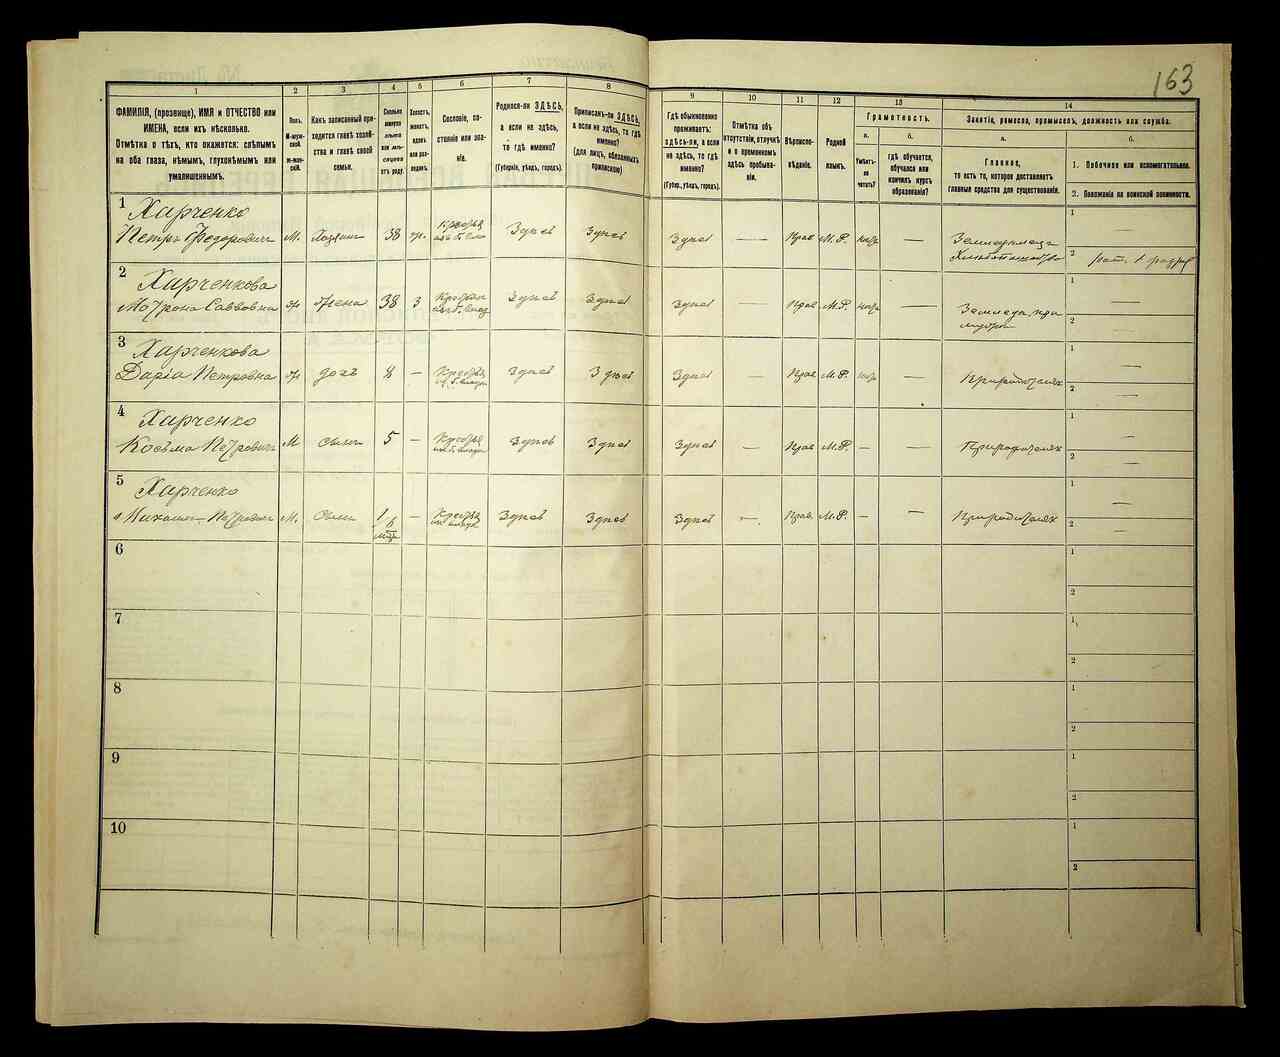 163
1
2
3
4
5
6
7
8
9
10
11
12
13
14
ФАМИЛІЯ, (прозвище), ИМЯ и ОТЧЕСТВО или
ИМЕНА, если ихъ нѣсколько.
Отмѣтка о тѣхъ, кто окажется: слѣпымъ
на оба глаза, нѣмымъ, глухонѣмымъ или
умалишеннымъ.
Полъ.
М-муж-
ской.
Ж-жен-
скій.
Какъ записанный при-
ходится главѣ хозяй-
ства и главѣ своей
семьи.
Сколько
минуло
лѣтъ
или мѣ-
сяцевъ
отъ роду.
Холостъ,
женатъ,
вдовъ
или раз-
веденъ.
Сословіе, со-
стояніе или зва-
ніе.
Родился-ли ЗДѢСЬ,
а если не здѣсь,
то гдѣ именно?
(Губернія, уѣздъ, городъ).
Приписанъ-ли ЗДѢСЬ,
а если не здѣсь, то гдѣ
именно?
(для лицъ, обязанныхъ
припискою)
Гдѣ обыкновенно
проживаетъ:
здѣсь-ли, а если
не здѣсь, то гдѣ
именно?
(Губер., уѣздъ, городъ).
Отмѣтка объ
отсутствіи, отлучкѣ
и о временномъ
здѣсь пребыва-
ніи.
Вѣроиспо-
вѣданіе.
Родной
языкъ.
Грамотность.
а.
б.
Умѣетъ-
ли
читать?
гдѣ обучается,
обучался или
кончилъ курсъ
образованія?
Занятіе, ремесло, промыселъ, должность или служба.
а.
б.
Главное,
то есть то, которое доставляетъ
главныя средства для существованія.
1. Побочное или вспомогательное.
2. Положеніе по воинской повинности.
1 Харченко
Петръ Федоровичъ М. Хозяинъ 38 Здѣсь Здѣсь Здѣсь — Прав М.Р. —
1 —
2
2 Харченкова
Мотрона Саввовна жена 38 Здѣсь Здѣсь Здѣсь — Прав М.Р. —
1 —
2 —
3 Харченкова
Дарія Петровна дочь 8 — Здѣсь Здѣсь Здѣсь — Прав М.Р. — При родителяхъ
1 —
2 —
4 Харченко
Косьма Петровичъ М сынъ 5 — Здѣсь Здѣсь Здѣсь — Прав М.Р. — — При родителяхъ
1 —
2 —
5 Харченко
Михаилъ Петровичъ М. сынъ — Здѣсь Здѣсь Здѣсь — Прав. М.Р. — — При родителяхъ
1 —
2 —
6
1
2
7
1
2
8
1
2
9
1
2
10
1
2